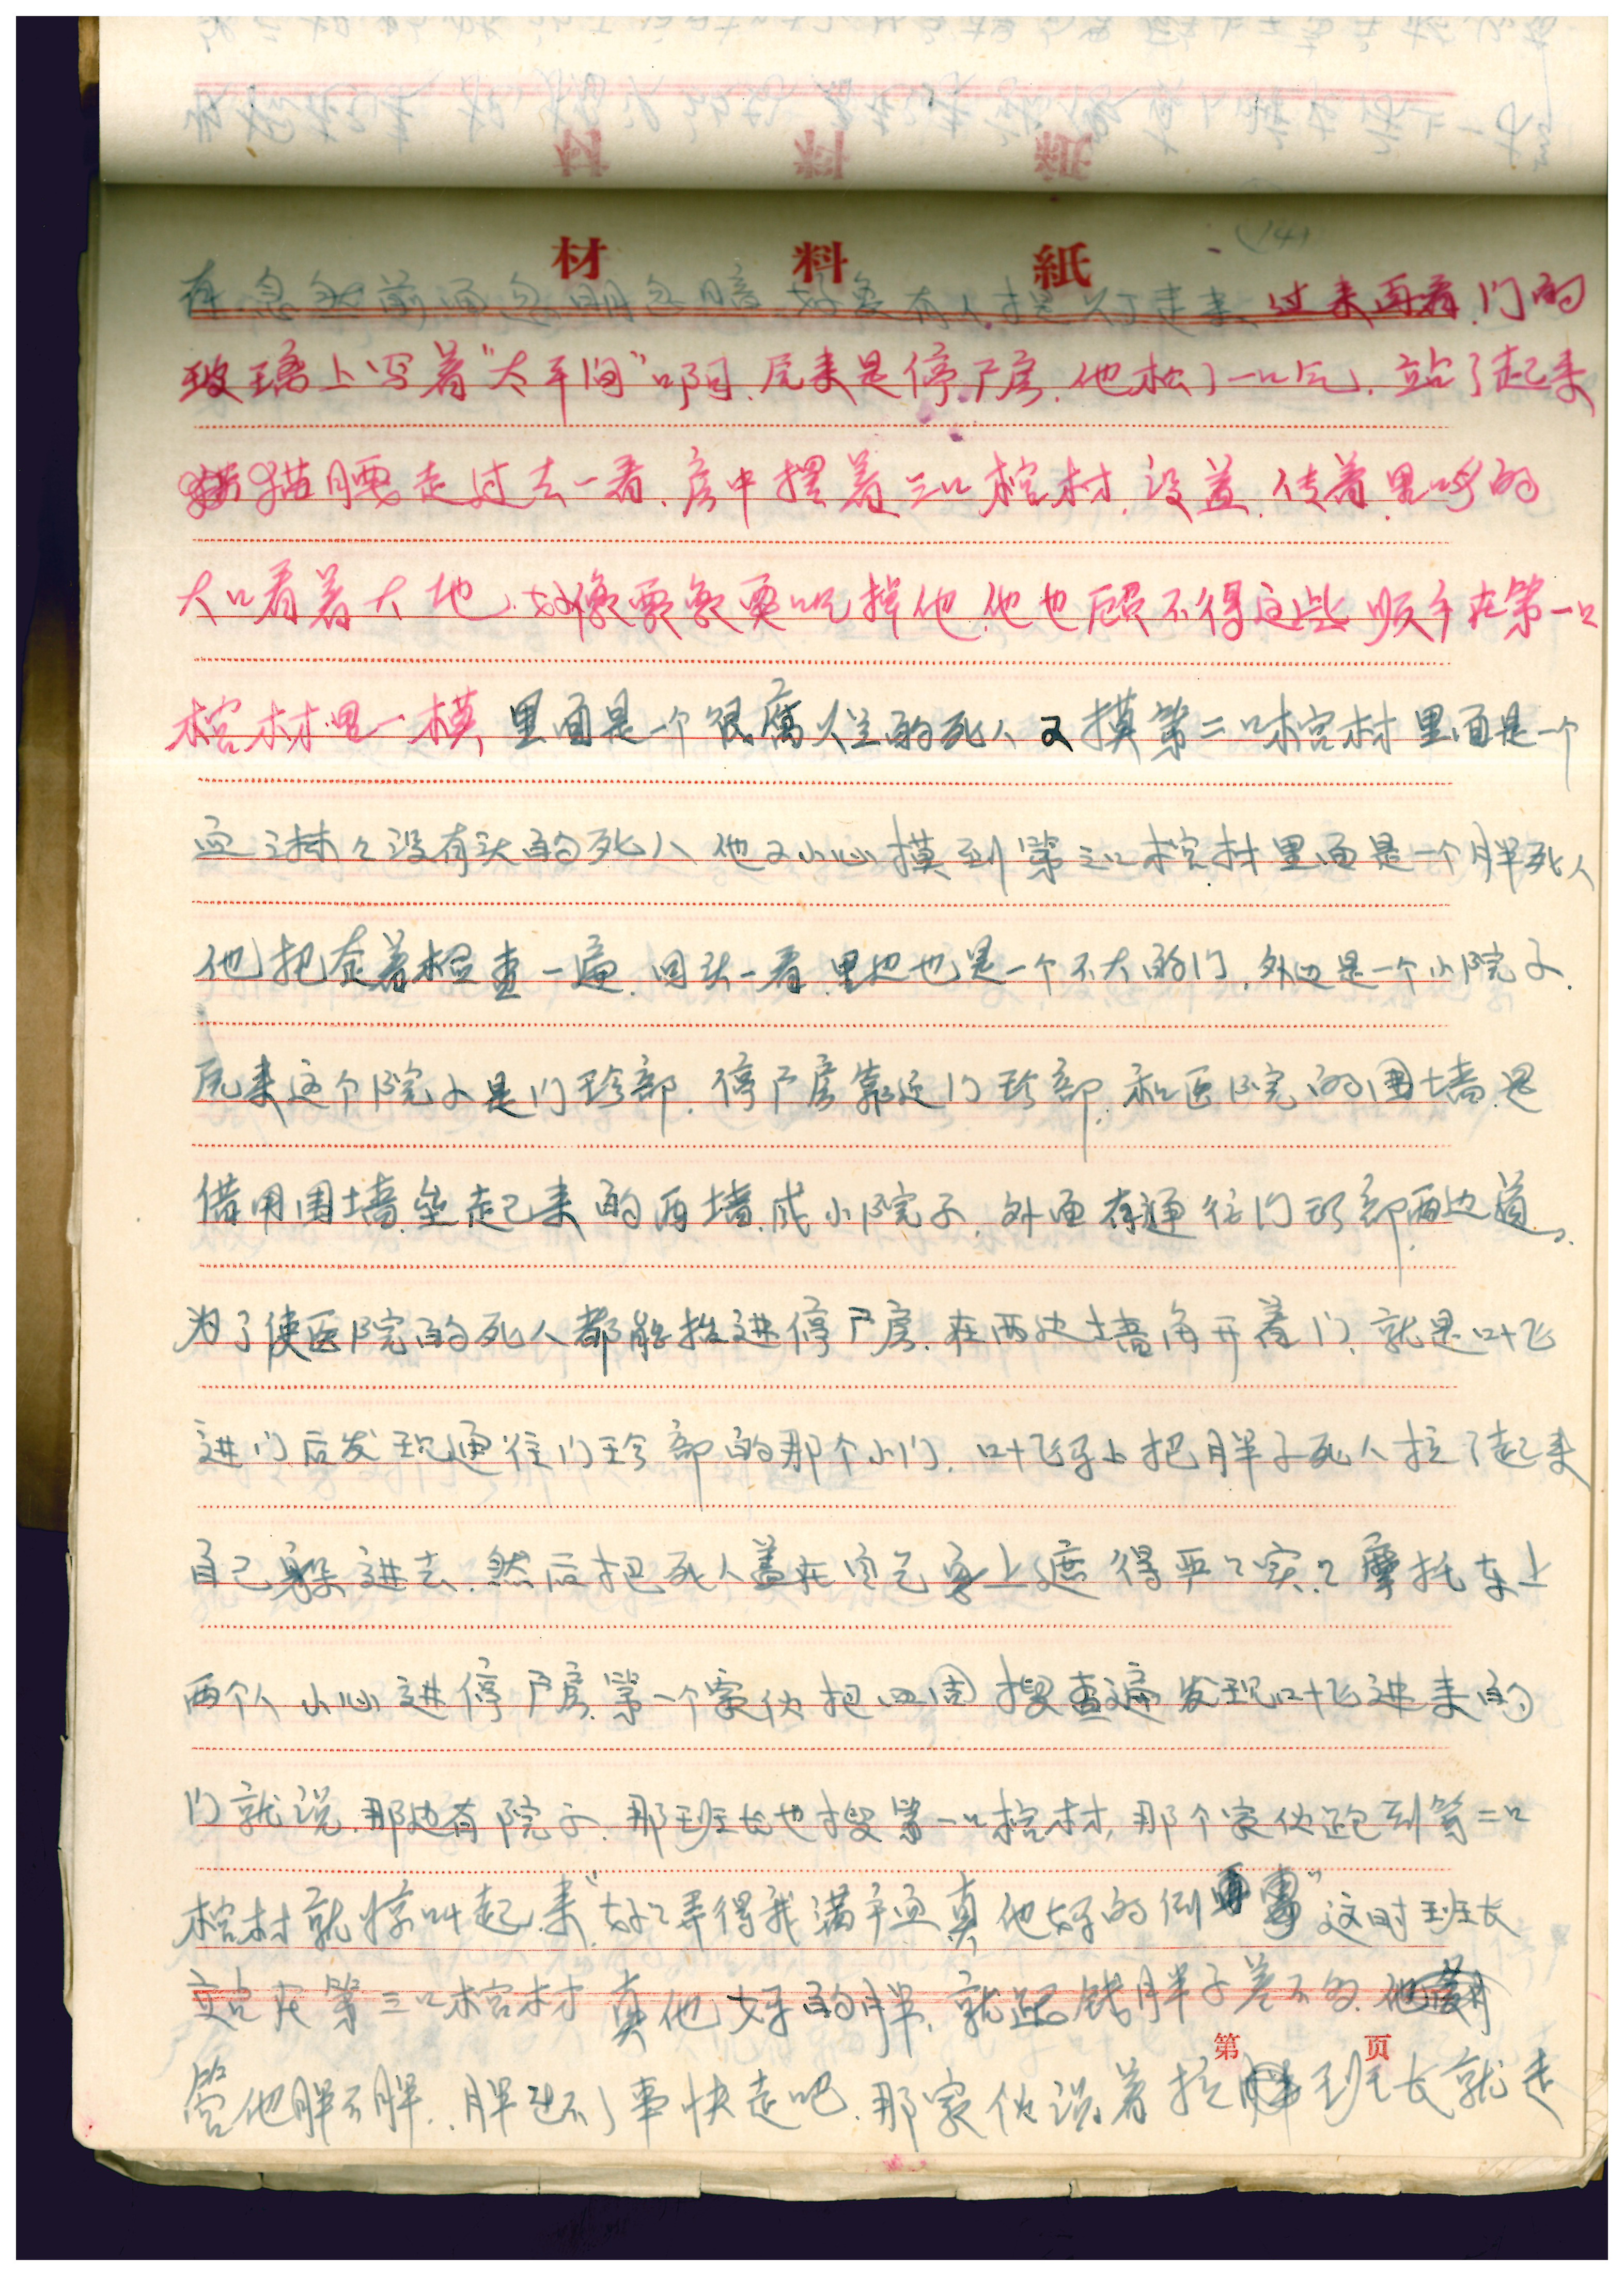 (14)
材料紙
存忽然前面忽明忽暗好象有人提灯走来过来再看门的
玻璃上写着"太平间"啊.原来是停尸房.他松了一口气.站了起来
猫腰走过去一看.房中摆着三口棺材.没盖.传着黑呼的
大口看着大地.好像要象要吃掉他.他也顾不得这些顺手在第一口
棺材里一摸里面是个很腐烂的死人又摸第二口棺材里面是一个
血淋々没有头的死人他又小心摸到第三口棺材里面是一个胖死人
他把查着检查一遍.回头一看.里边也是一个不大的门.外边是一个小院子.
原来这个院子是门珍部.停尸房靠近门珍部.和医院的围墙是
借用围墙.垒起来的两墙.成小院子.外面有通往门珍部两边道.
为了使医院的死人都能抬进停尸房.在两边墙角开着门.就是叶飞
进门后发现通往门珍部的那个小门.叶飞马上把胖子死人拉了起来
自己躲进去.然后把死人盖在自己身上遮得严々实々摩托车上
两个人小心进停尸房.第一个家伙把四周搜查遍发现叶飞进来的
门就说.那边有院子.那班长也搜第一口棺材,那个家伙跑到第二口
棺材就惊叫起来"好々弄得我满手血真他妈的倒霉"这时班长
站在第三口棺材真他妈的胖.就跟钱胖子差不多.他
管他胖不胖.胖也不了事快走吧.那家伙说着拉班长就走
第 页